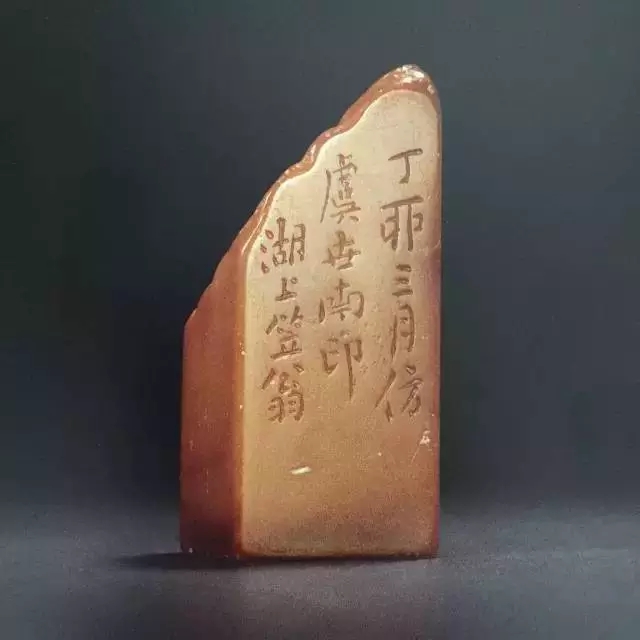 丁卯三月仿
虞世南印
湖上笠翁